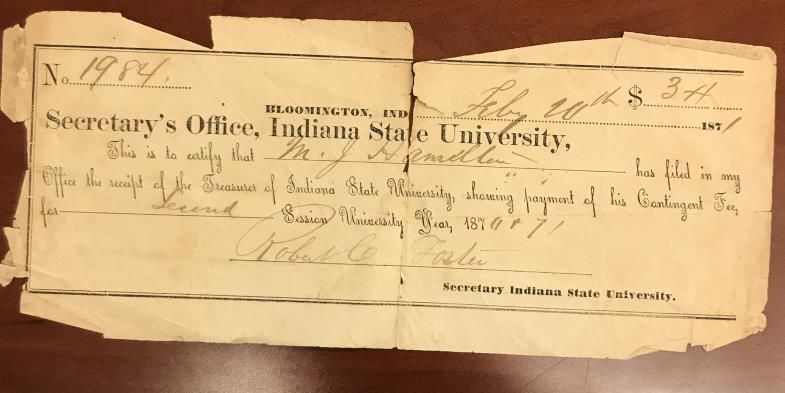 No 1984. $ 3 H
BLOOMINGTON, IND Feby 20th 1871
Secretary's Office, Indiana State University,
This is to certify that M. J. Hamilton has filed in my
Office the receipt of the Treasurer of Indiana State University, showing payment of his Contingent Fee,
for Second Session University Year, 1870 & 71
Robert C Foster
Secretary Indiana State University.